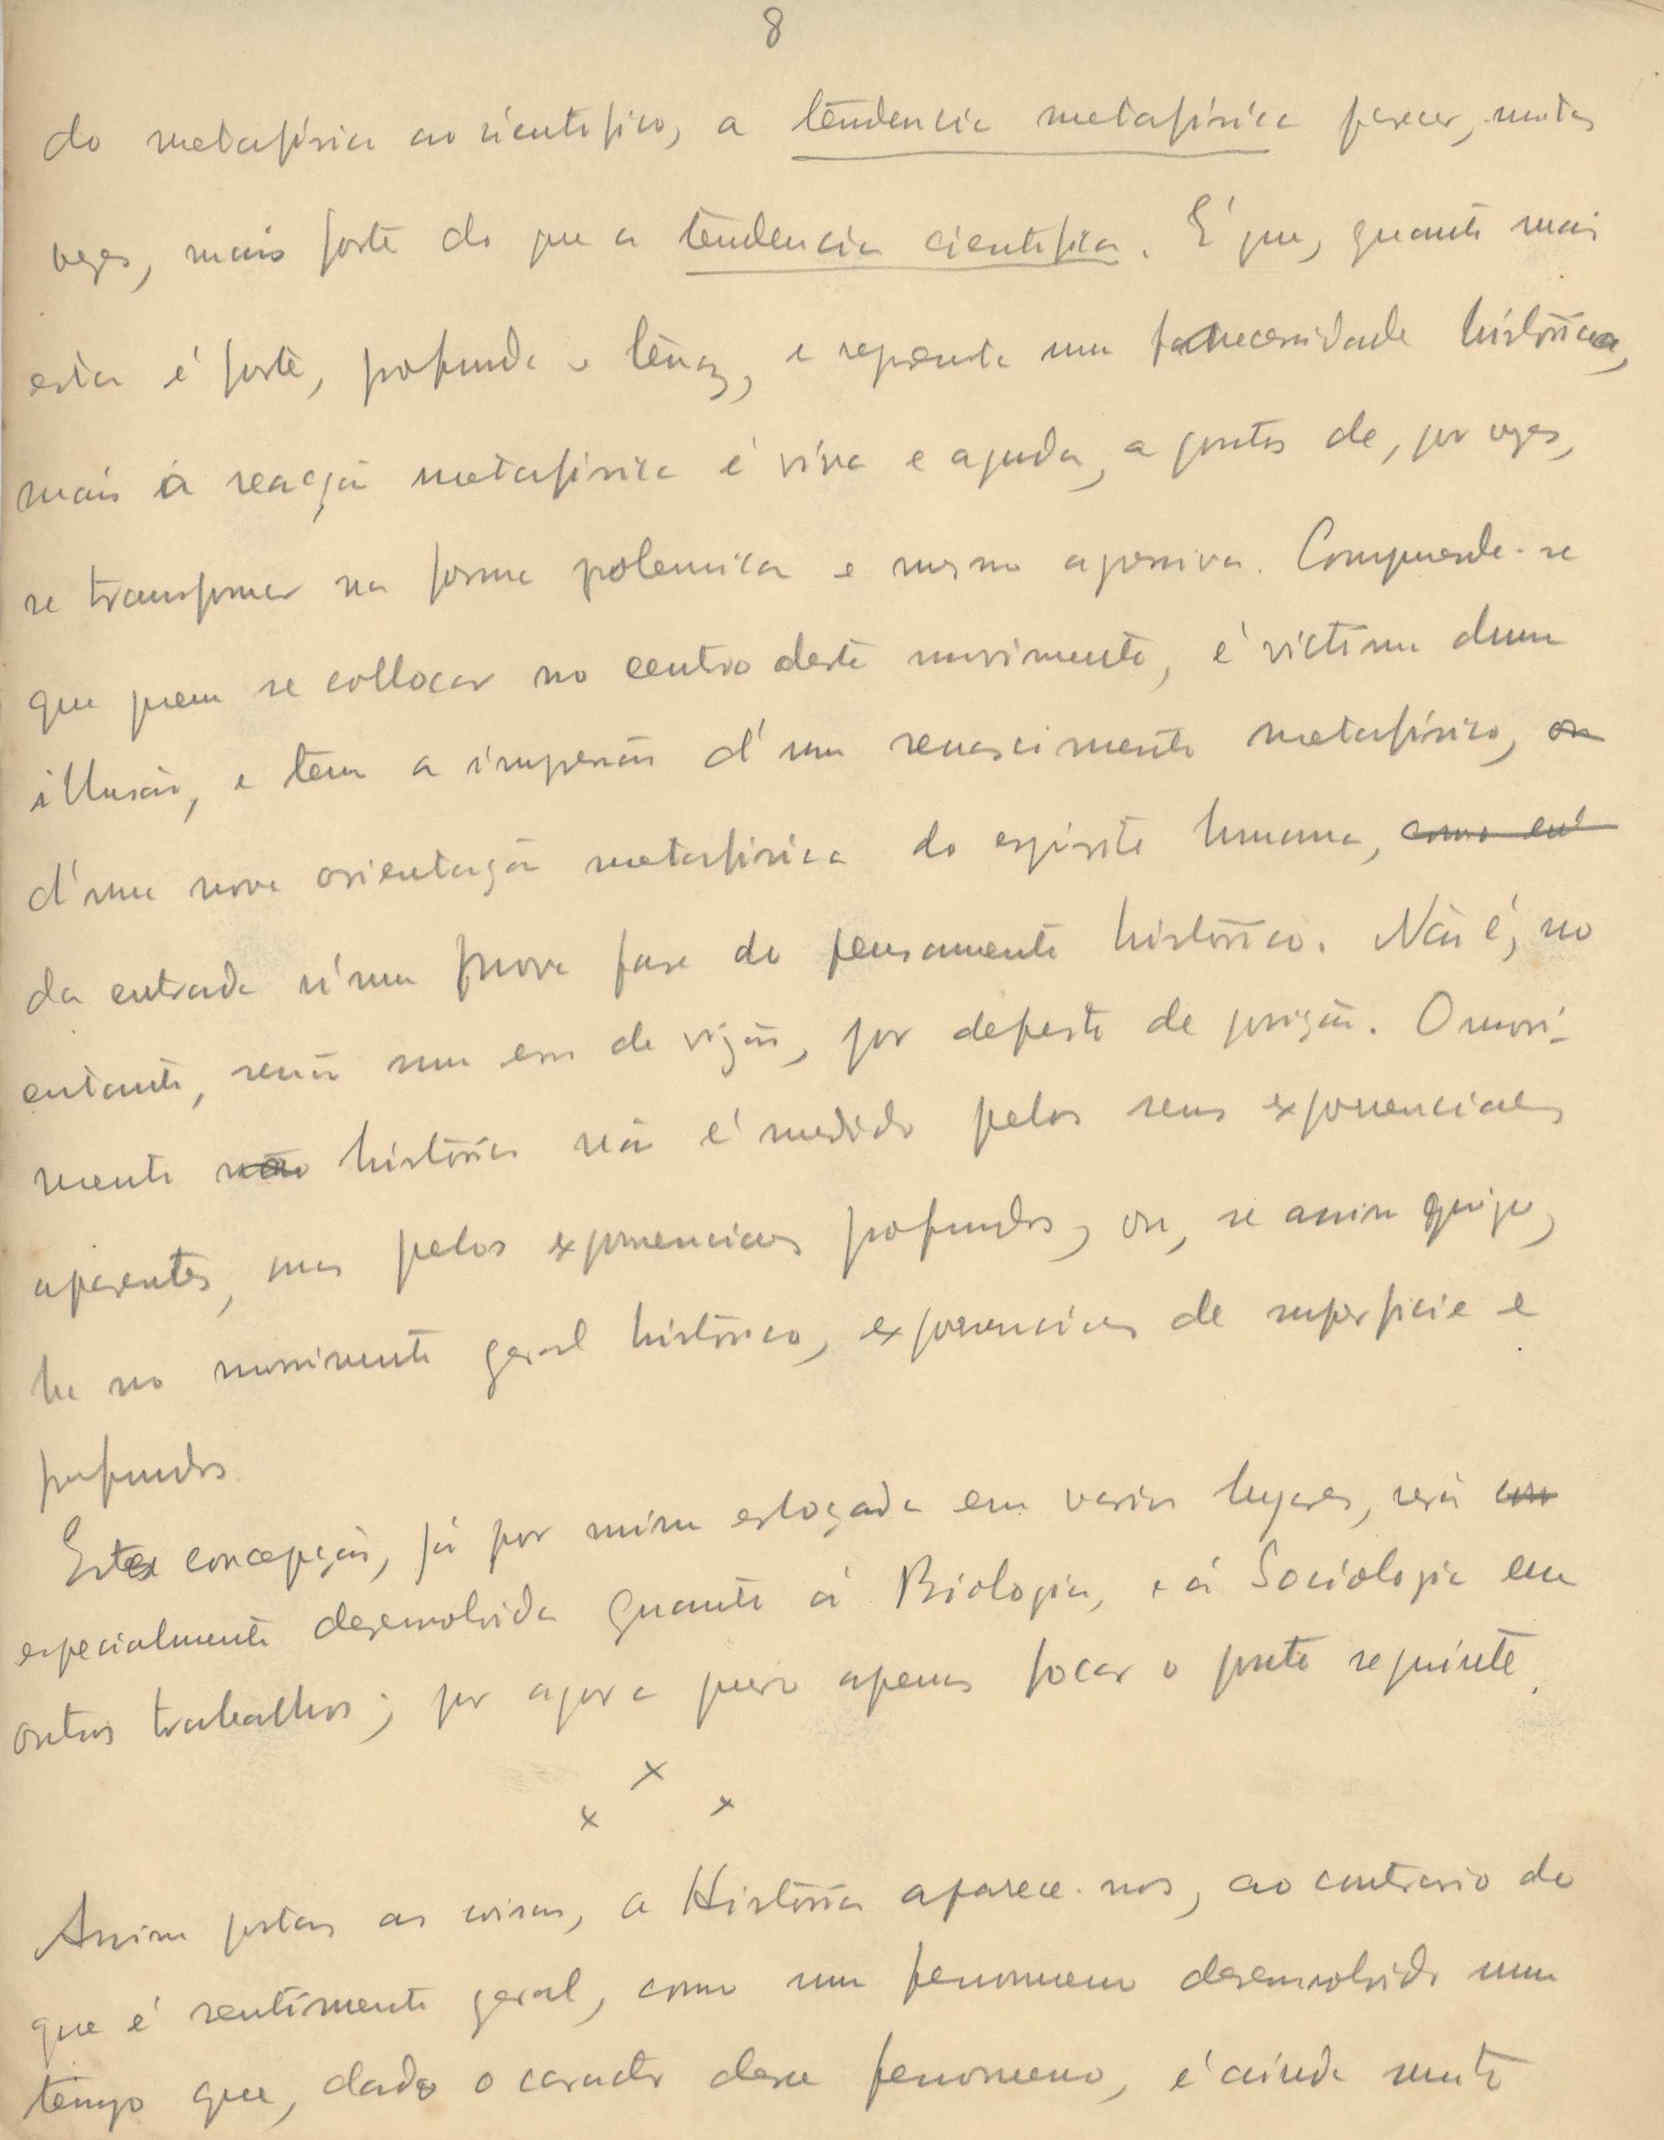 8
do metafisico ao scientifico, a tendencia metafisica parece, muitas
vezes, mais forte do que a tendencia cientifica. É que, quanto mais
esta é forte, profunda e tenaz, e representa uma necessidade histórica,
mais a reacção metafisica é viva e aguda, a pontos de, por vezes,
se transformar na forma polemica e mesmo agressiva. Comprende-se
que quem se collocar no centro deste movimento, é victima duma
illusão, e tem a impressão d'um renascimento metafisico, ou
d'uma nova orientação metafisica do espirito humano, como
da entrada n'uma nova fase do pensamento histórico. Não é, no
entanto, senão um erro de visão, por defeito de posição. O movi-
mento não histórico não é medido pelos seus exponenciaes
aparentes, mas pelos exponenciaes profundos, ou, se assim quizer,
ha no movimento geral histórico, exponenciaes de superficie e
profundos.
Esta concepção, já por mim esboçada em varios lugares, será
especialmente desenvolvida quanto á Biologia, e á Sociologia em
outros trabalhos; por agora quero apenas focar o ponto seguinte.
x x x
Assim postas as coisas, a História aparece-nos, ao contrario do
que é sentimento geral, como um fenomeno desenvolvido num
tempo que, dado o caracter desse fenomeno, é ainda muito